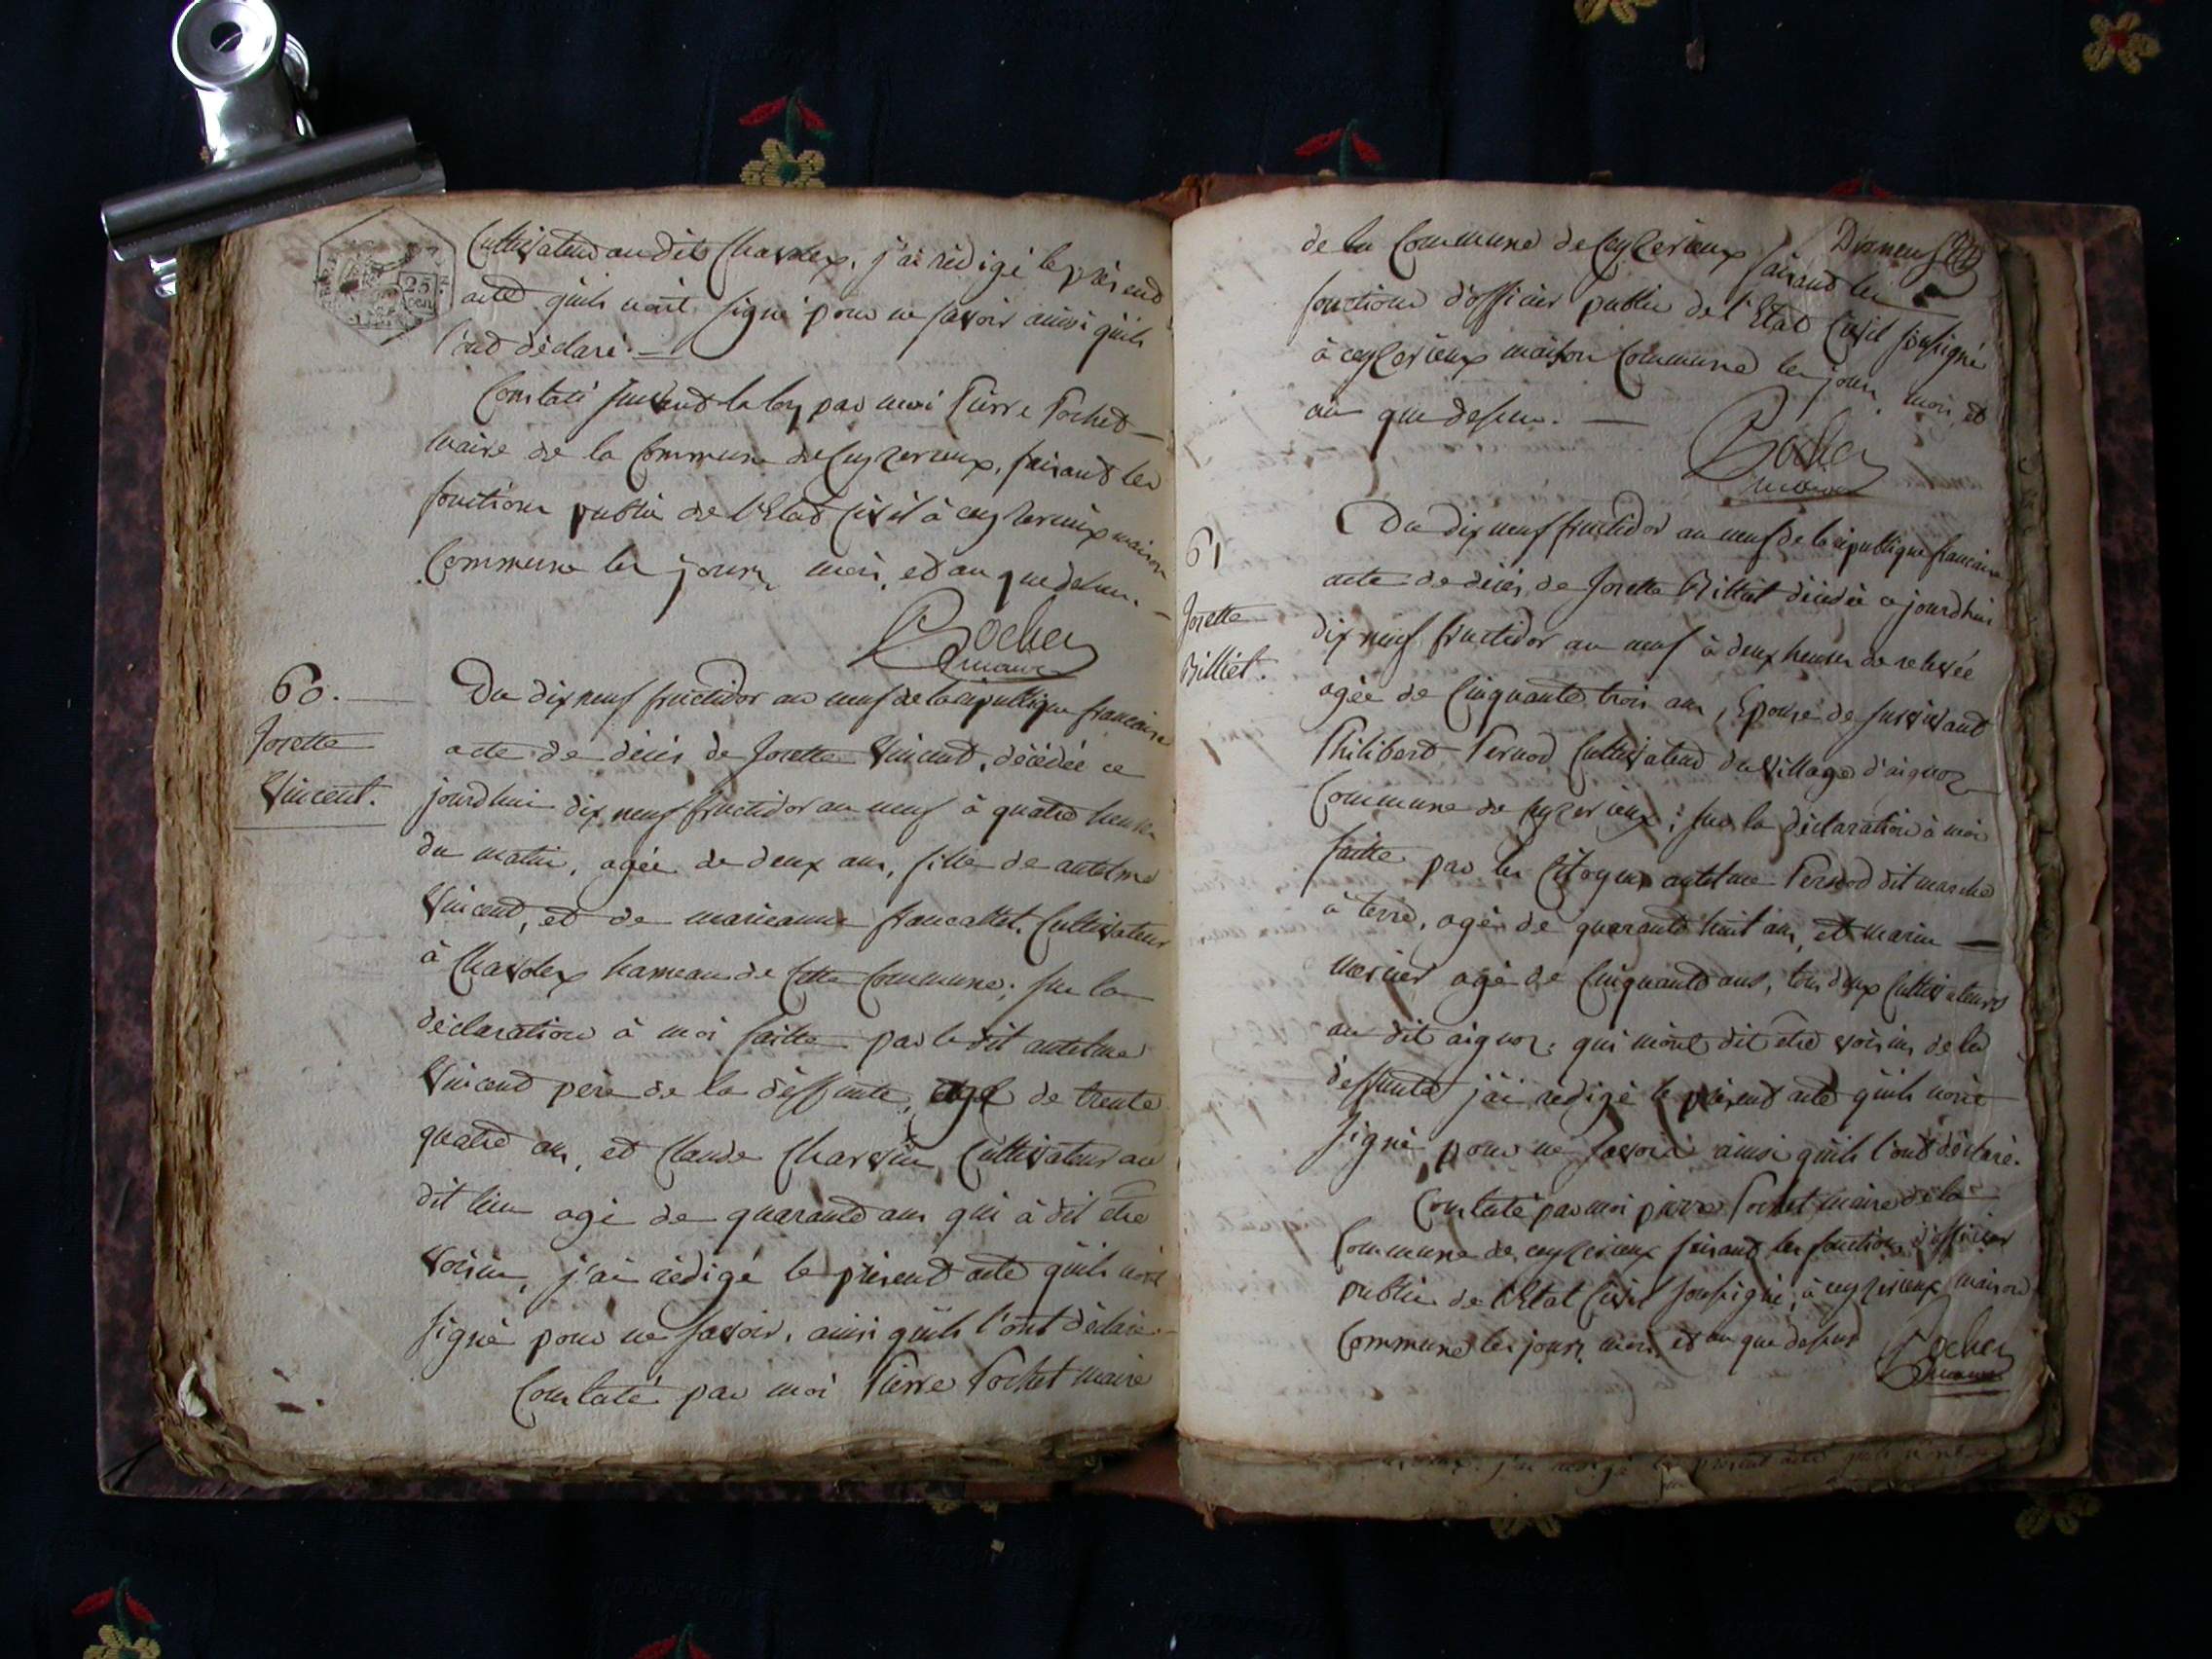 25
cen
Cultivateur audit Chavoley, j'ai rédigé le présent
acte quils nont signé pour ne savoir ainsi quils
l'ont déclaré.
Constaté suivant la loy par moi Pierre Pochet
maire de la Commune de Ceyzerieux, faisant les
fonctions public de l'Etat Civil à ceyzerieux maison
Commune les jours, mois, et an que dessus.
Pochet
maire
60.
Josette
Vincent.
Du dix neuf fructidor an neuf de la république francaise
acte de décès de Josette Vincent, décédée ce
jourdhui dix neuf fructidor an neuf à quatre heures
du matin, agée de deux ans, fille de antelme
Vincent, et de marieanne francallet, Cultivateur
à Chavoley hameau de Cette Commune; sur la
déclaration à moi faitte par le dit antelme
Vincent père de la déffunte, agé de trente
quatre ans, et Claude Charvin, Cultivateur au
dit lieu agé de quarante ans qui à dit etre
voisin, j'ai rédigé le présent acte quils nont
signé pour ne savoir, ainsi quils l'ont déclaré.
Constaté par moi Pierre Pochet maire
de la Commune de Ceyzerieux faisant les
fonctions d'officier public de l'Etat Civil soussigné
à ceyzerieux maison Commune les jours, mois, et
an que dessus.
Pochet
maire
61
Josette
Billiet.
Du dix neuf fructidor an neuf de la république francaise
acte de décès de Josette Billiet décédée ce jourdhui
dix neuf fructidor an neuf à deux heures de relevée
agée de Cinquante trois ans, Epouse de survivant
Philibert Pernod Cultivateur du village d'aignoz
Commune de Ceyzerieux; sur la déclaration à moi
faitte par les Citoyens antelme Pernod dit marche
à terre, agé de quarante huit ans, et marin
mercier agé de Cinquante ans, tous deux Cultivateurs
au dit aignoz, qui m'ont dit etre voisins de la
deffunte j'ai rédigé le présent acte quils nont
signé, pour ne savoir ainsi quils l'ont déclaré.
Constaté par moi pierre Pochet maire de la
Commune de ceyzerieux faisant les fonctions d'officier
public de l'Etat Civil soussigné, à ceyzerieux maison
Commune les jours, mois, et an que dessus
Pochet
maire
j'ai rédigé le présent acte quils n'ont